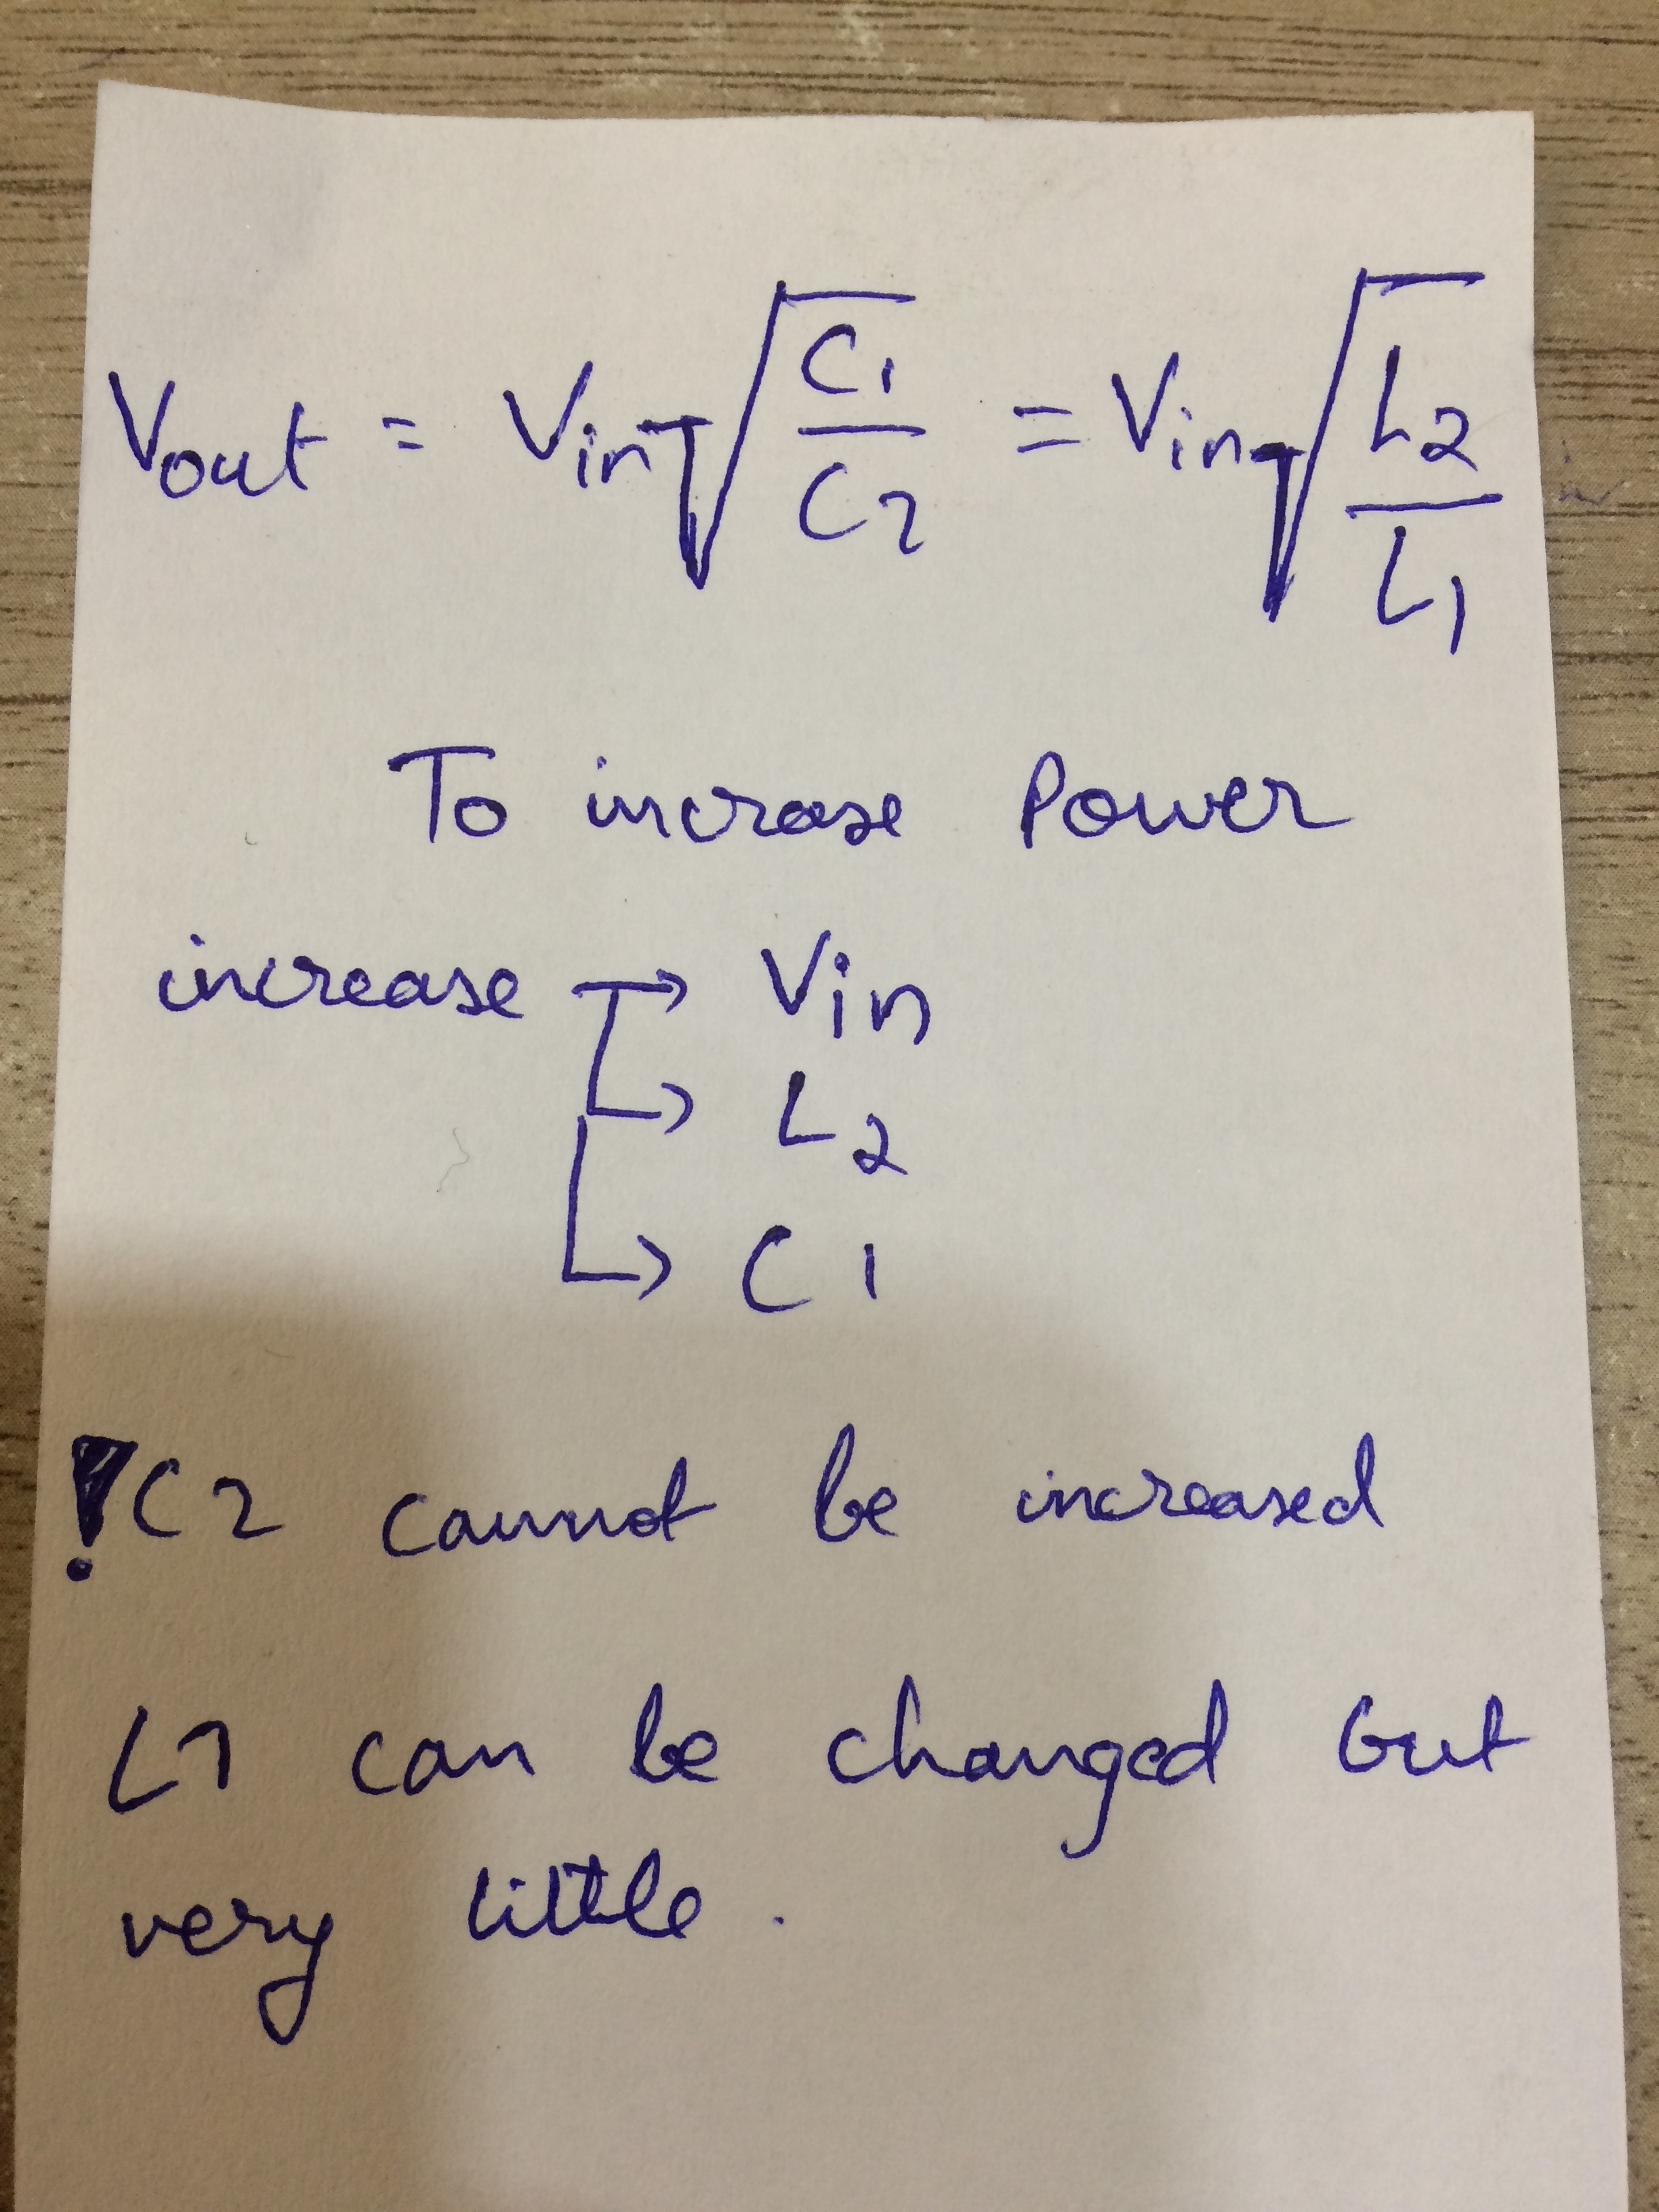 Vout = Vin √(C1/C2) = Vin √(L2/L1)
To increase Power
increase → Vin
→ L2
→ C1
! C2 cannot be increased
L1 can be changed but
very little.